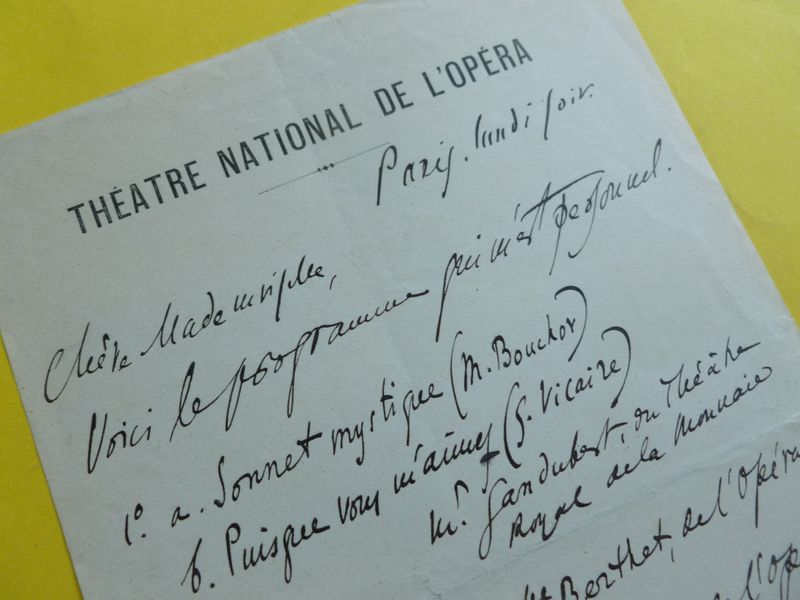 THÉATRE NATIONAL DE L'OPÉRA
Paris. lundi soir.
Chère Mademoiselle,
Voici le programme qui m'est personnel.
1º. a. Sonnet mystique (M. Bouchor)
b. Puisque vous m'aimez (G. Vicaire)
Mr. Gandubert, du Théâtre
Royal de la Monnaie
Berthet, de l'Opéra
de l'Opé